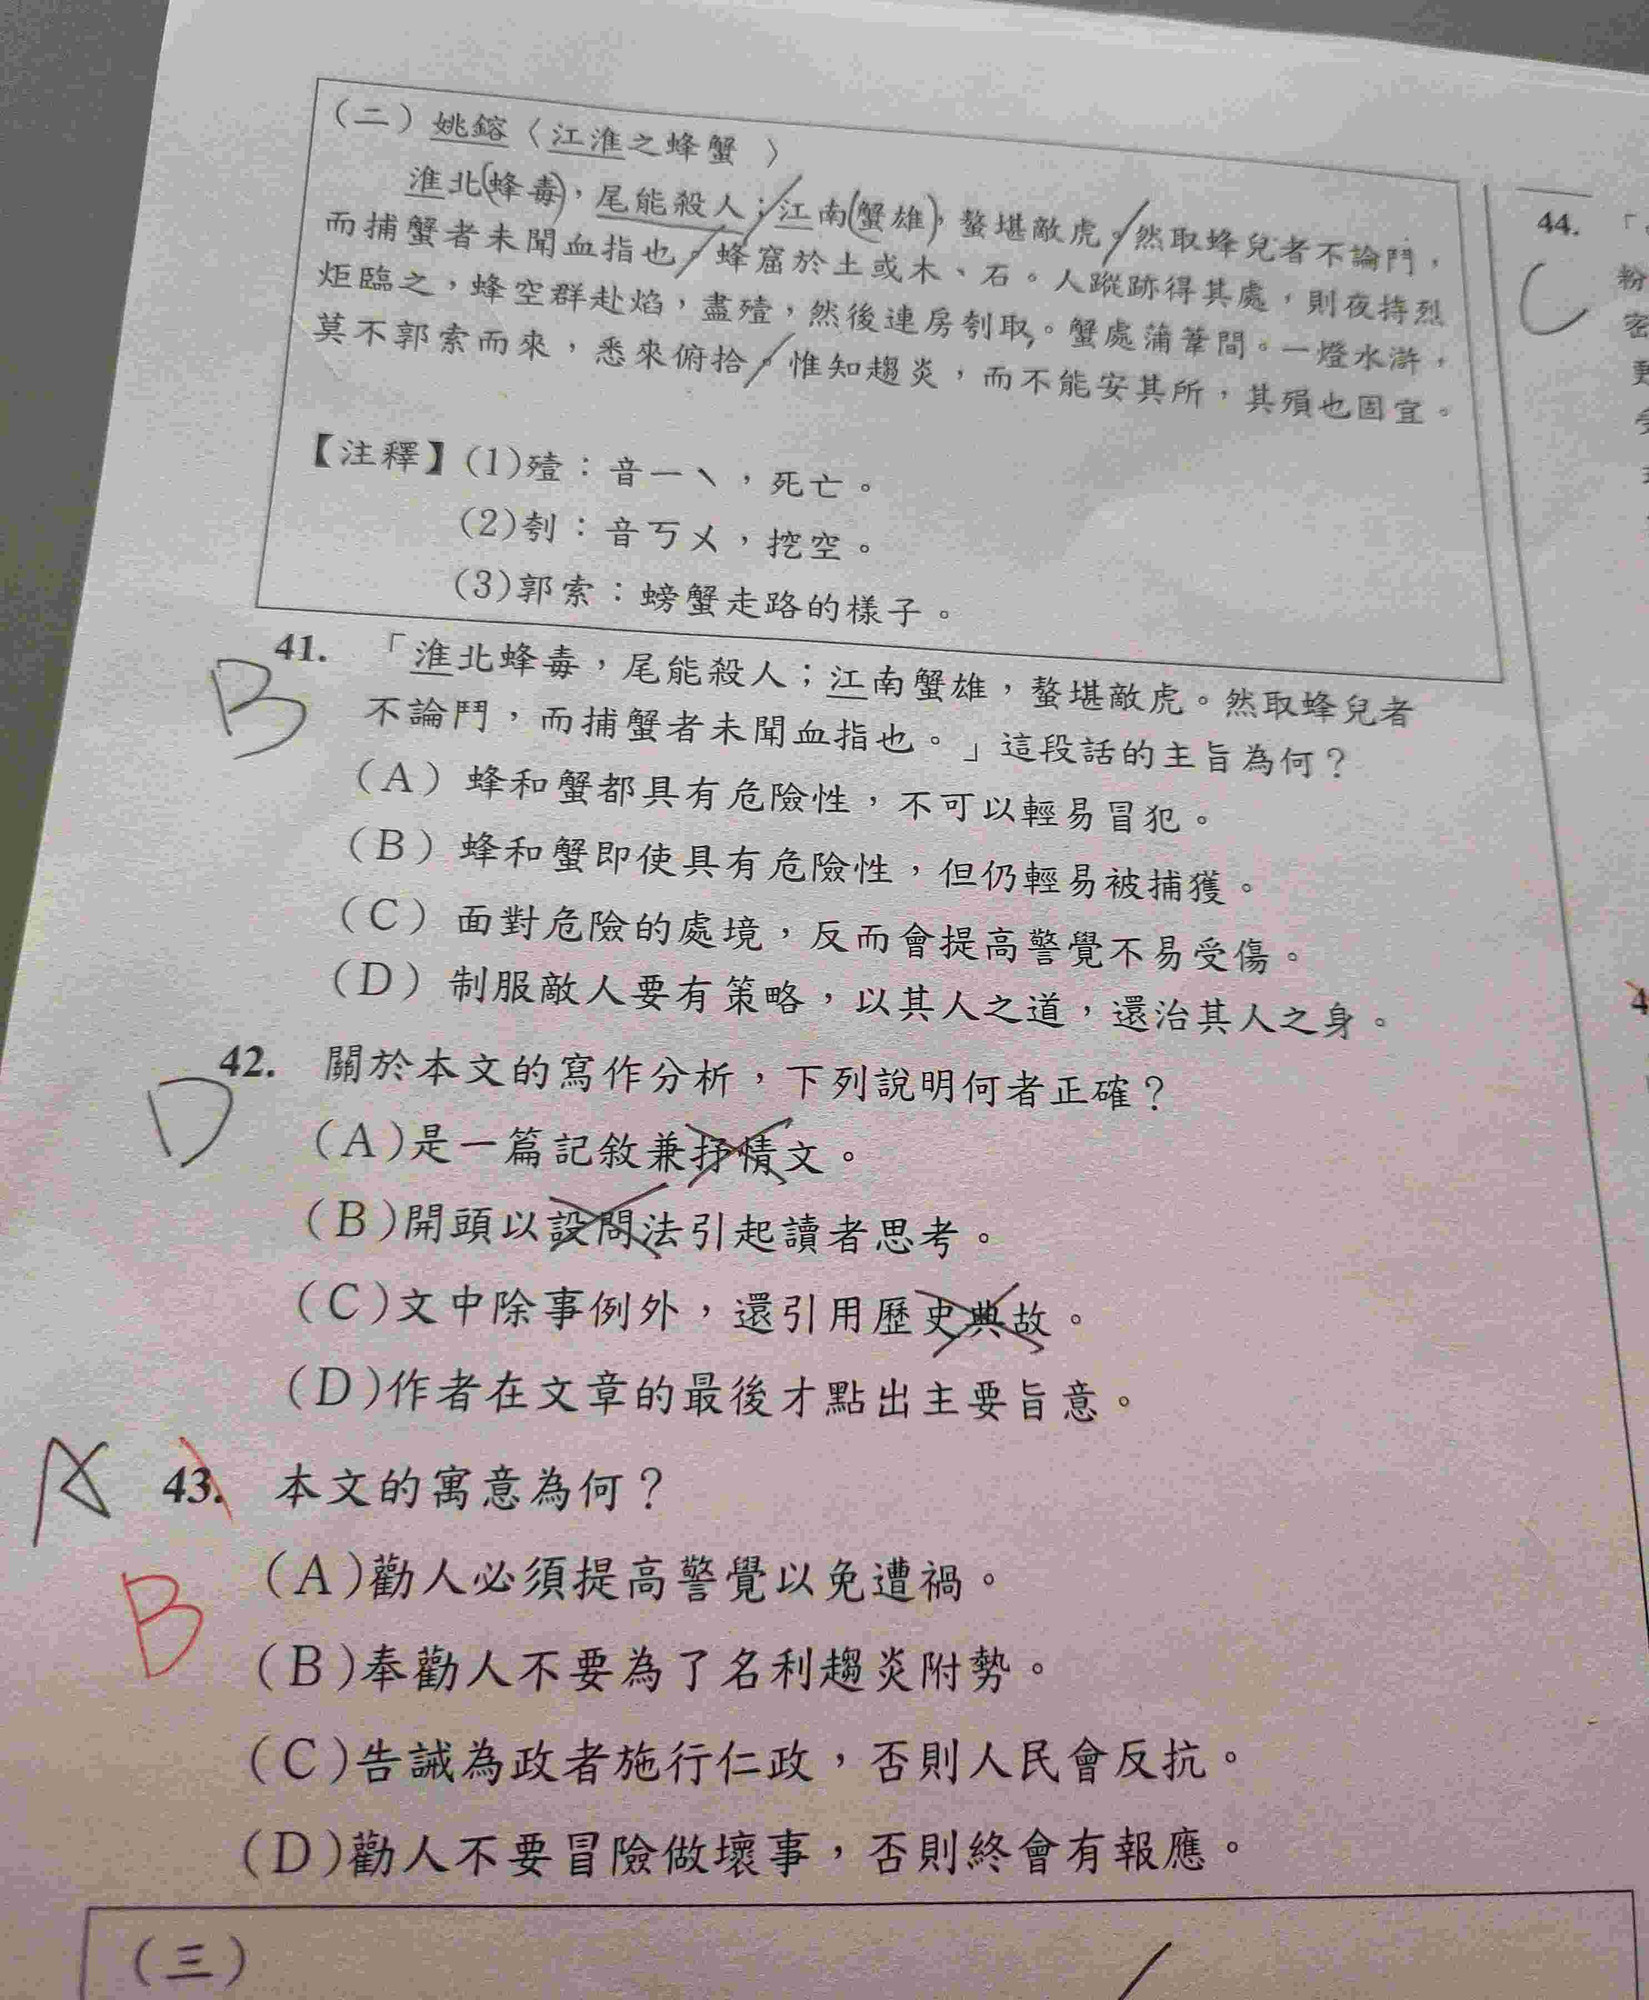 (二)姚鎔〈江淮之蜂蟹〉
淮北蜂毒，尾能殺人；江南蟹雄，螯堪敵虎。然取蜂兒者不論鬥，
而捕蟹者未聞血指也。蜂窟於土或木、石。人蹤跡得其處，則夜持烈
炬臨之，蜂空群赴焰，盡殪，然後連房刳取。蟹處蒲葦間。一燈水滸，
莫不郭索而來，悉來俯拾。惟知趨炎，而不能安其所，其殞也固宜。
【注釋】(1)殪：音ㄧˋ，死亡。
(2)刳：音ㄎㄨ，挖空。
(3)郭索：螃蟹走路的樣子。
B 41. 「淮北蜂毒，尾能殺人；江南蟹雄，螯堪敵虎。然取蜂兒者
不論鬥，而捕蟹者未聞血指也。」這段話的主旨為何？
(A) 蜂和蟹都具有危險性，不可以輕易冒犯。
(B) 蜂和蟹即使具有危險性，但仍輕易被捕獲。
(C) 面對危險的處境，反而會提高警覺不易受傷。
(D) 制服敵人要有策略，以其人之道，還治其人之身。
D 42. 關於本文的寫作分析，下列說明何者正確？
(A)是一篇記敘兼抒情文。
(B)開頭以設問法引起讀者思考。
(C)文中除事例外，還引用歷史典故。
(D)作者在文章的最後才點出主要旨意。
A 43. 本文的寓意為何？
B
(A)勸人必須提高警覺以免遭禍。
(B)奉勸人不要為了名利趨炎附勢。
(C)告誡為政者施行仁政，否則人民會反抗。
(D)勸人不要冒險做壞事，否則終會有報應。
(三)
44. 「
C 粉
密